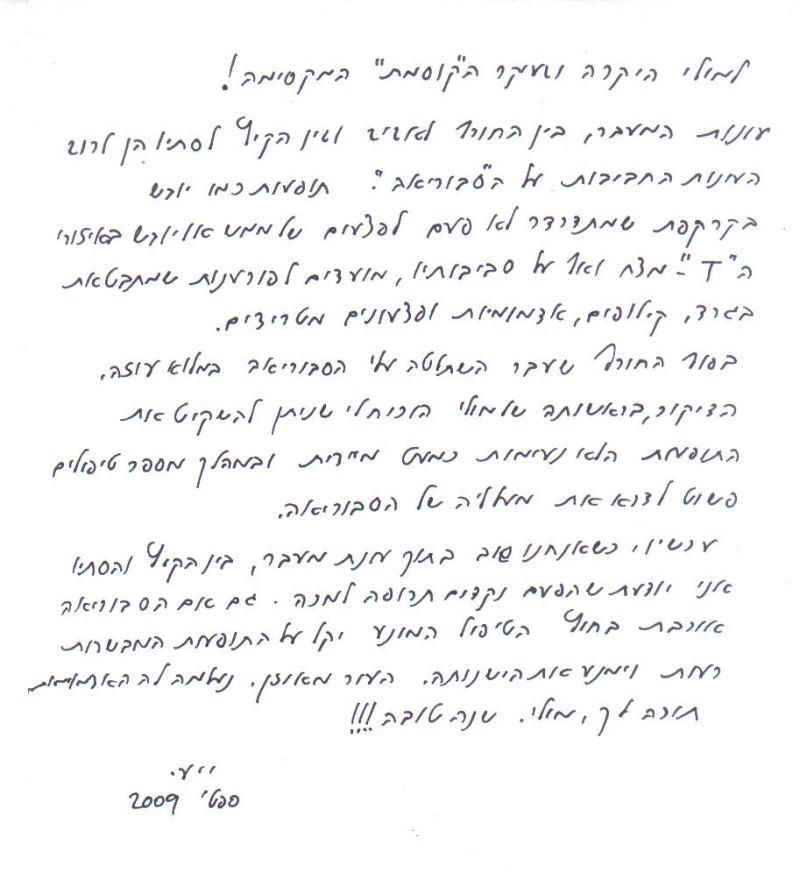 למולי היקרה ובעיקר ה"קוסמת" המקסימה!
עונות המעבר, בין החורף לאביב ובין הקיץ לסתיו הן לרוב
העונות החביבות על ה"סבוריאה". תופעות כמו יובש
בקרקפת שמתדרדר לא פעם לפצעים של ממש או יובש באיזורי
ה"T"- מצח ואף על סביבותיו, מועדים לפורענות שמתבטאת
בגרד, קילופים, אדמומיות ופצעונים מטרידים.
בסוף החורף שעבר השתלטה עלי הסבוריאה במלוא עוזה.
הדיקור, בראשותה של מולי הוכוח לי שניתן להשקיט את
התופעות הלא נעימות כמעט מיידית ובמהלך מספר טיפולים
פשוט לדוא את מעליה של הסבוריאה.
עכשיו, כשאנחנו שוב בתוך עונת מעבר, בין הקיץ והסתיו
אני יודעת שהפעם נקדים תרופה למכה. גם אם הסבוריאה
אורבת בחוץ הטיפול המונע יקל על התופעות המבשרות
רעות וימנע את הישנותה. העור מאוזן. נעלמה לה האדמומיות
תודה לך, מולי. שנה טובה!!!
י"ע.
ספט' 2009